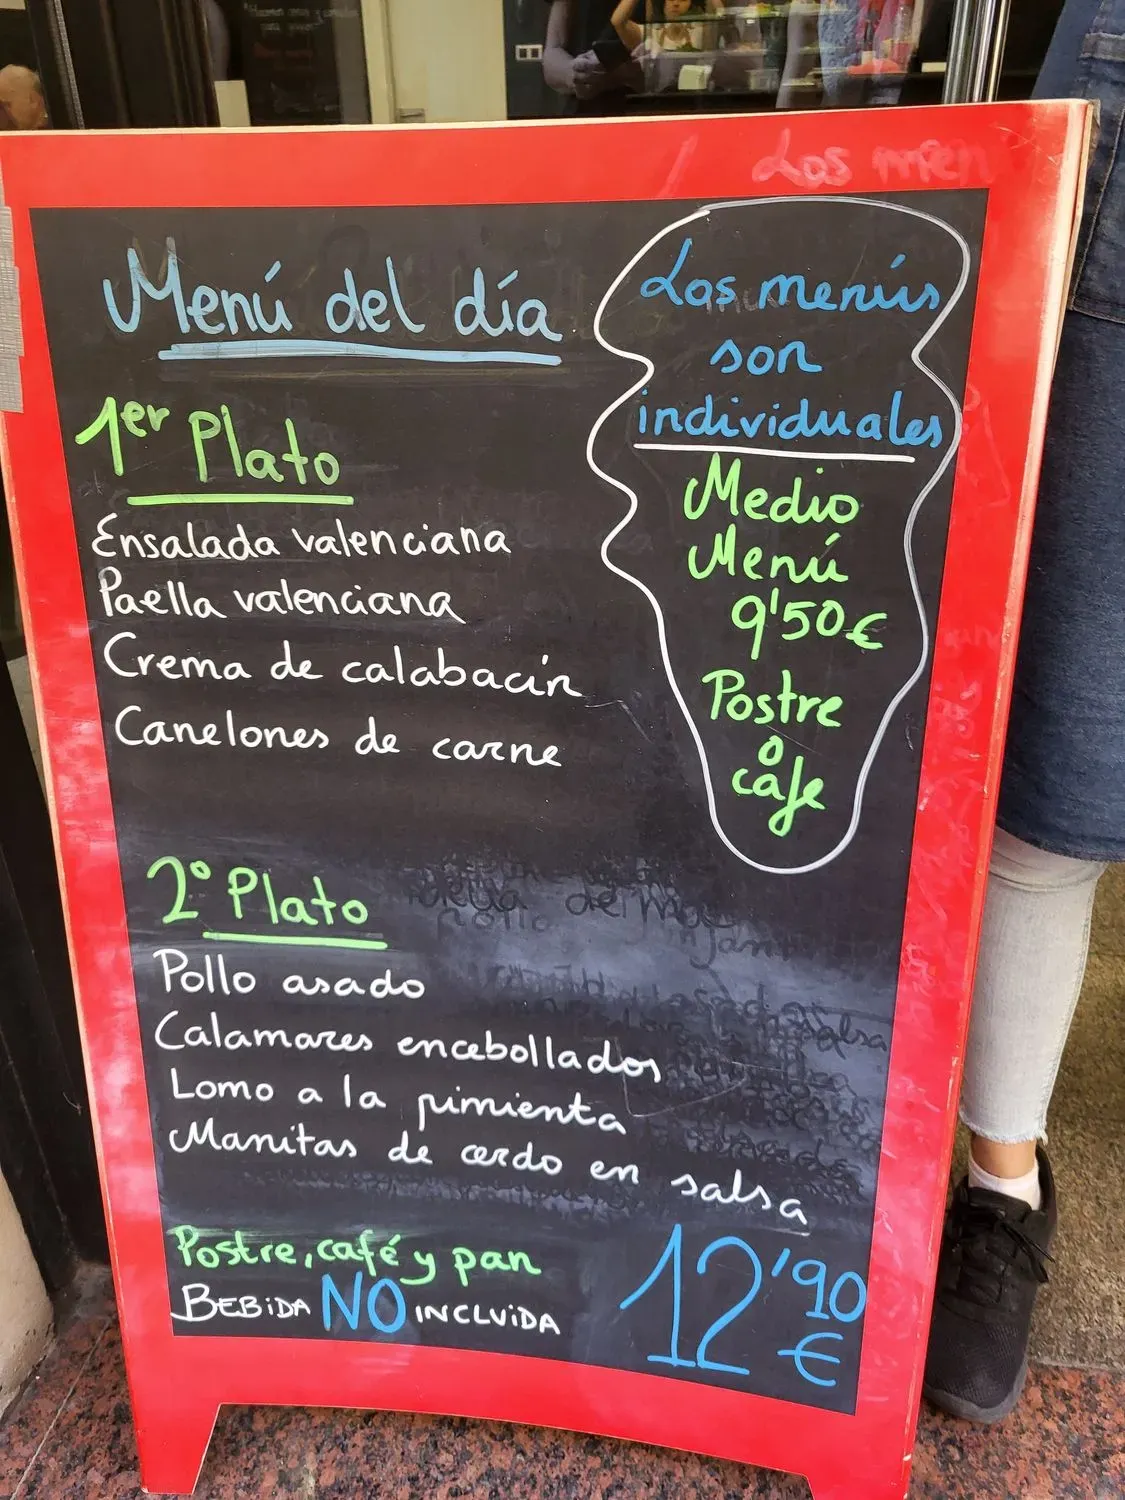 Los men
Menú del día
1er Plato
Ensalada valenciana
Paella valenciana
Crema de calabacín
Canelones de carne
2º Plato
Pollo asado
Calamares encebollados
Lomo a la pimienta
Manitas de cerdo en salsa
Postre, café y pan
BEBIDA NO INCLUIDA
12'90
€
Los menús
son
individuales
Medio
Menú
9'50€
Postre
o
cafe